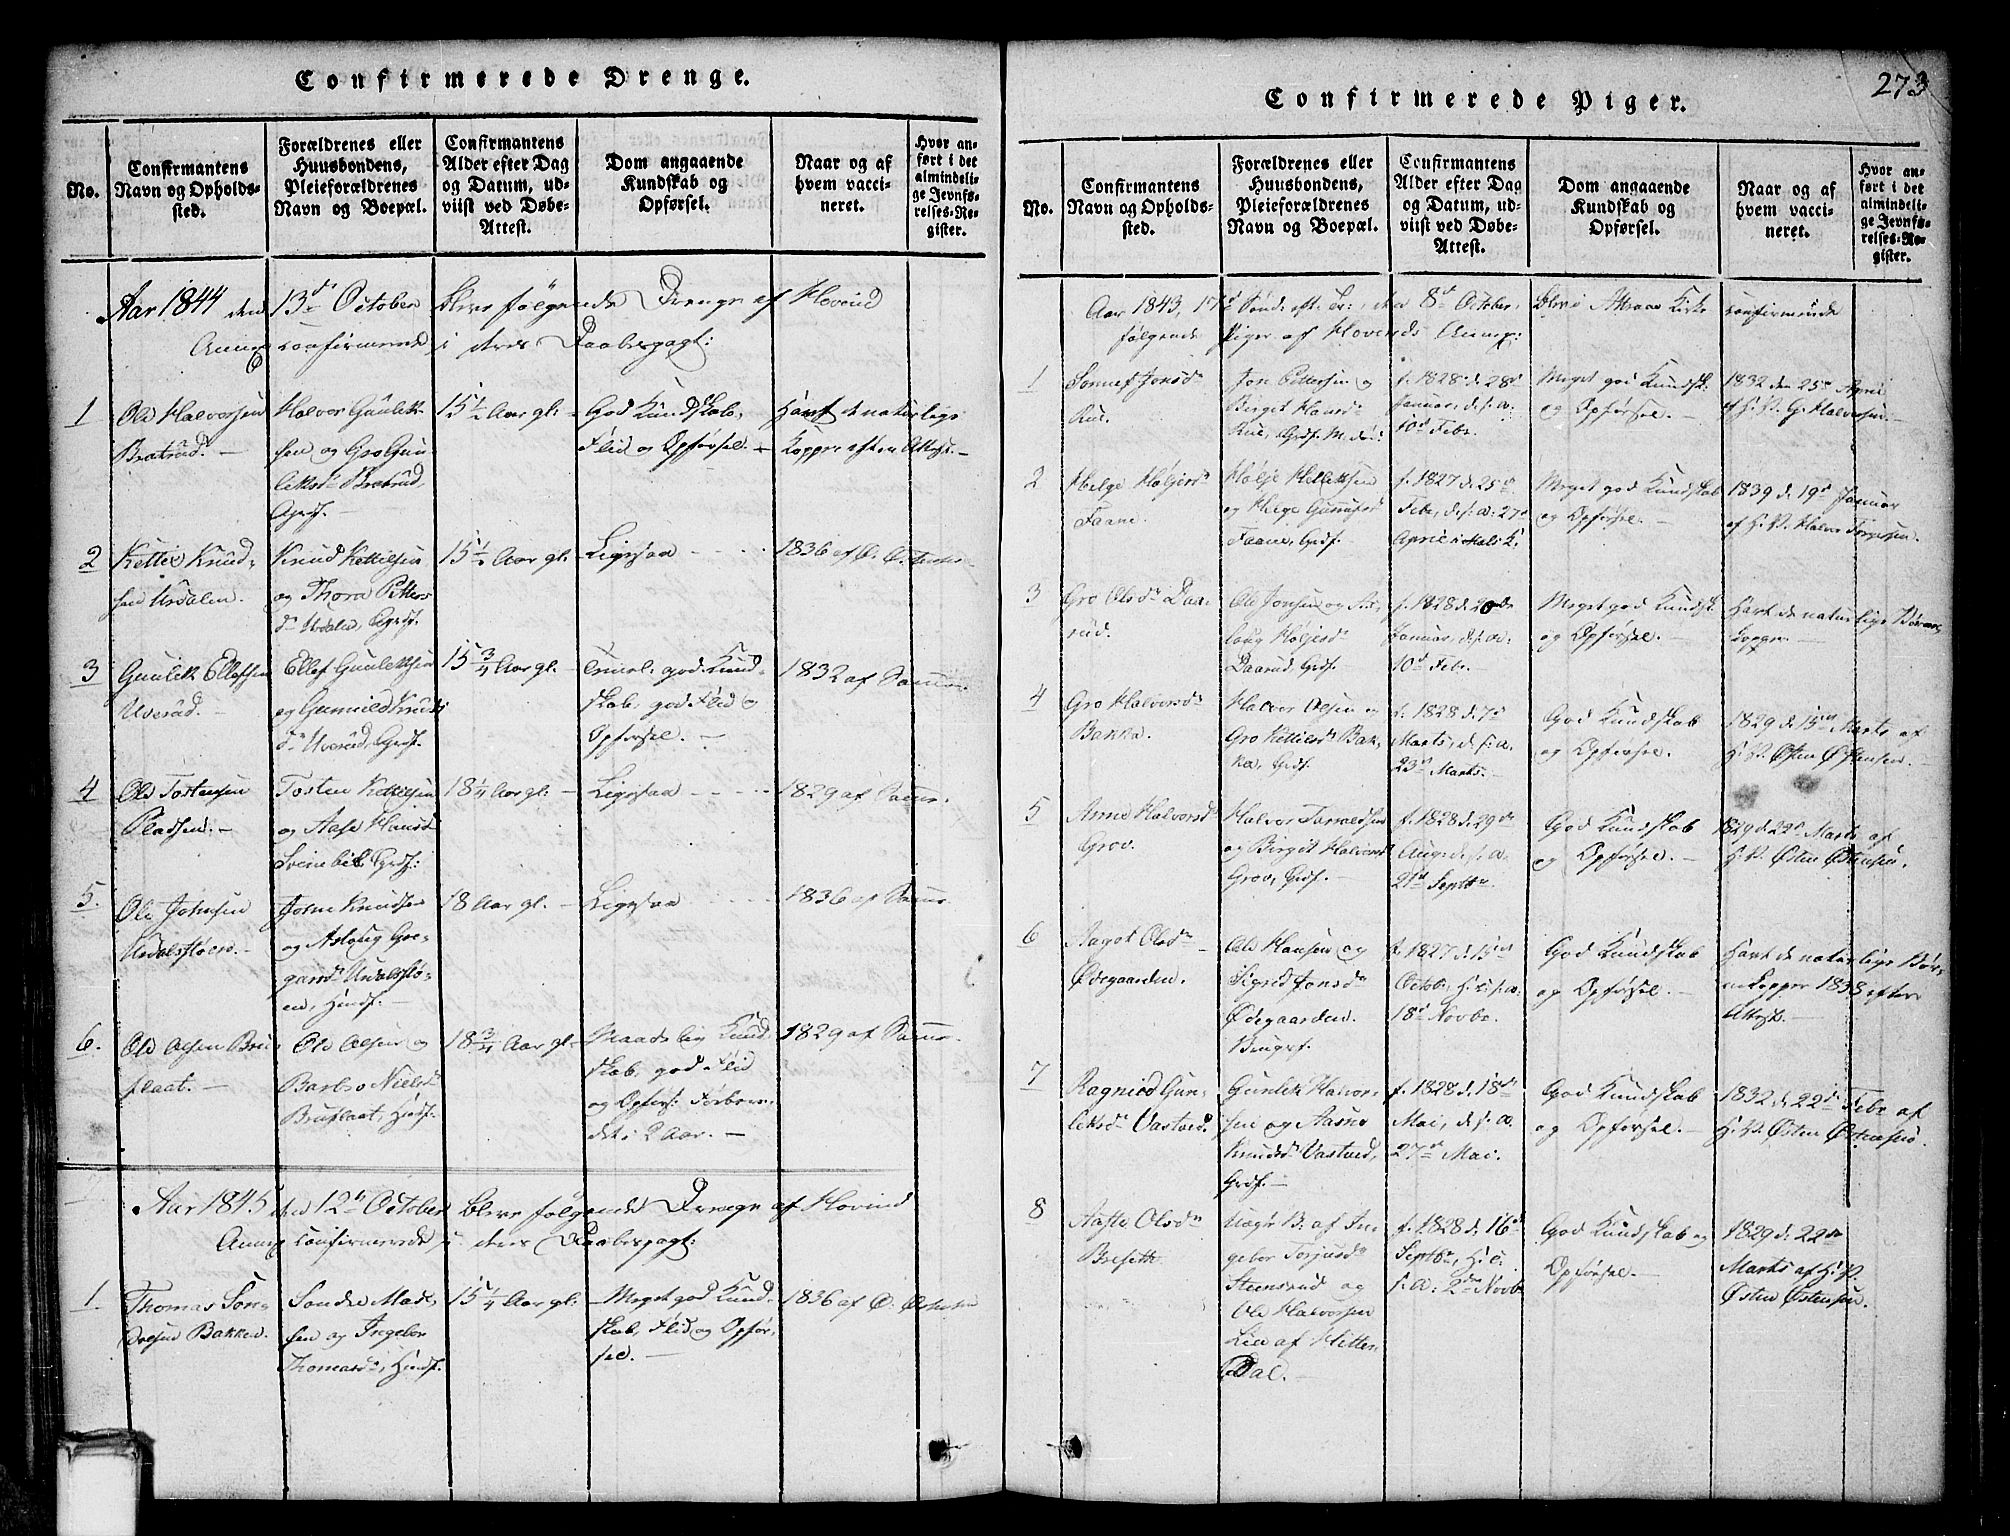 Confirmerede Drenge.
No.
Confirmantens
Navn og Opholds-
sted.
Forældrenes eller
Huusbondens,
Pleieforældrenes
Navn og Boepæl.
Confirmantens
Alder efter Dag
og Datum, ud-
viist ved Døbe-
Attest.
Dom angaaende
Kundskab og
Opførsel.
Naar og af
hvem vacci-
neret.
Hvor an-
ført i det
almindeli-
ge Jevnfø-
relses-Re-
gister.
Aar 1844 den 13de October bleve følgende Drenge af Hovind
Annex confirmerede i deres Daabespagt:
1
Ole Halvorsen
Bratrud. —
Halvor Gunlek-
sen og Gro Gun-
leksd. Bratrud,
Grdf.
15 1/2 Aar gl. —
God Kundskab,
Flid og Opførsel. —
Havt de naturlige
Kopper efter Attest. —
2
Kettil Knud-
sen Urdalen.
Knud Kettilsen
og Thora Petters
d. Urdalen, Grdf.
15 1/2 Aar gl. —
Ligesaa
1836 af Ø. Østensen
3
Gunlek Ellefsen
Uverud. —
Ellef Gunleksen
og Gunnild Knuds
d. Uverud, Grdf.
15 3/4 Aar gl. —
god Kund-
skab, god Flid og
Opførsel. —
1832 af Samme
4
Ole Tostensen
Pladsen. —
Tosten Kettilsen
og Aase Hansd.
Grdf:
18 1/4 Aar gl. —
Ligesaa
1829 af Samme.
5.
Ole Johnsen
Urdalsfløen. —
John Knudsen
og Aslaug Gre-
gardsd. Urdalsflø-
en, Huusf. —
18 Aar gl. —
Ligesaa
1836 af Samme
6.
Ole Olsen Bru-
flaat. —
Ole Olsen og
Barbro Nielsd.
Bruflaat, Huusf.
18 3/4 Aar gl. —
Maadelig Kund-
skab, god Flid
og Opførs:
2 Aar. —
1829 af Samme.
Aar 1845 den 12te October bleve følgende Drenge af Hovind
Annex confirmerede i deres Daabespagt:
1.
Thomas Son-
dresen Bakken.
Sondre Mad-
sen og Ingebor
Thomasd., Huusf.
15 1/4 Aar gl. —
Meget god Kund-
skab, Flid og Opfør-
sel. —
1836 af Ø. Østensen
273
Confirmerede Piger.
No.
Confirmantens
Navn og Opholds-
sted.
Forældrenes eller
Huusbondens,
Pleieforældrenes
Navn og Boepæl.
Confirmantens
Alder efter Dag
og Datum, ud-
viist ved Døbe-
Attest.
Dom angaaende
Kundskab og
Opførsel.
Naar og af
hvem vacci-
neret.
Hvor an-
ført i det
almindeli-
ge Jevnfø-
relses-Re-
gister.
Aar 1843, 17d Sønd. eft. Tr:, den 8d October, bleve i Attraae Kirke confirmerede
følgende Piger af Hovinds Annex:
1
Sonnef Jonsdr
Rue.
Jon Pettersen og
Birget Hansdr
Rue, Grdf.
f. 1828 d. 28de
Januar, d. s. a.
10d Febr.
Meget god Kundsk:
og Opførsel. —
1832 den 25de April
af H. P. G. Halvorsen.
2
Helge Høljesdr
Faane.
Hølje Helleksen
og Helge Gunnufsdr
Faane, Grdf.
f. 1827 d. 25de
Febr, d. s. a. 27d
April i Hovl. K.
Meget god Kundskab
og Opførsel. —
1839 d. 19d Januar
af H. P. Halvor Torgersen.
3
Gro Olsdr Daa-
rud.
Ole Jonsen og As-
laug Høljesdr
Daarud, Grdf.
f. 1828 d. 20de
Januar, d. s. a.
10d Febr. —
Meget god Kundsk:
og Opførsel. —
Havt de naturlige Børne-
kopper. —
4
Gro Halvorsdr
Bakka.
Halvor Olsen og
Gro Kettilsdr Bak-
ka, Grdf.
f. 1828 d. 7de
Marts, d. s. a.
23de Marts. —
God Kundskab
og Opførsel. —
1829 d. 15de Marts af
H. P. Østen Østensen. —
5
Anne Halvorsdr
Grov.
Halvor Torvaldsen
og Birget Halvorsd
Grov, Grdf. —
f. 1828 d. 29de
Aug. d. s. a.
21d Septbr.
God Kundskab
og Opførsel. —
1829 d. 29d Marts af
H. P. Østen Østensen.
6
Aagot Olsdr
Ødegaarden.
Ole Hansen og
Sigrid Jonsdr
Ødegaarden.
Brugsf.
f. 1827 d. 15de
Octobr, H. i s. a.
18d Novbr.
God Kundskab
og Opførsel. —
Havt de naturlige Bør-
nekopper 1838 efter
Attest. —
7
Ragnild Gun-
leksdr Vastveid.
Gunlek Halvor-
sen og Aasne
Knudsd Vastveid,
Grdf. —
f. 1828 d. 18de
Mai, d. s. a.
27de Mai.
God Kundskab
og Opførsel. —
1832 d. 22de Febr af
H. P. Østen Østensen.
8
Aaste Olsdr
Bresette.
Uægte B. af In-
gebor Torjusdr
Steensrud og
Ole Halvorsen
Lie af Hitter-
Dal. —
f. 1828 d. 16de
Septbr,
s. a. 2den Novbr.
God Kundskab og
Opførsel. —
1829 d. 22de
Marts af H. P.
Østen Østensen.